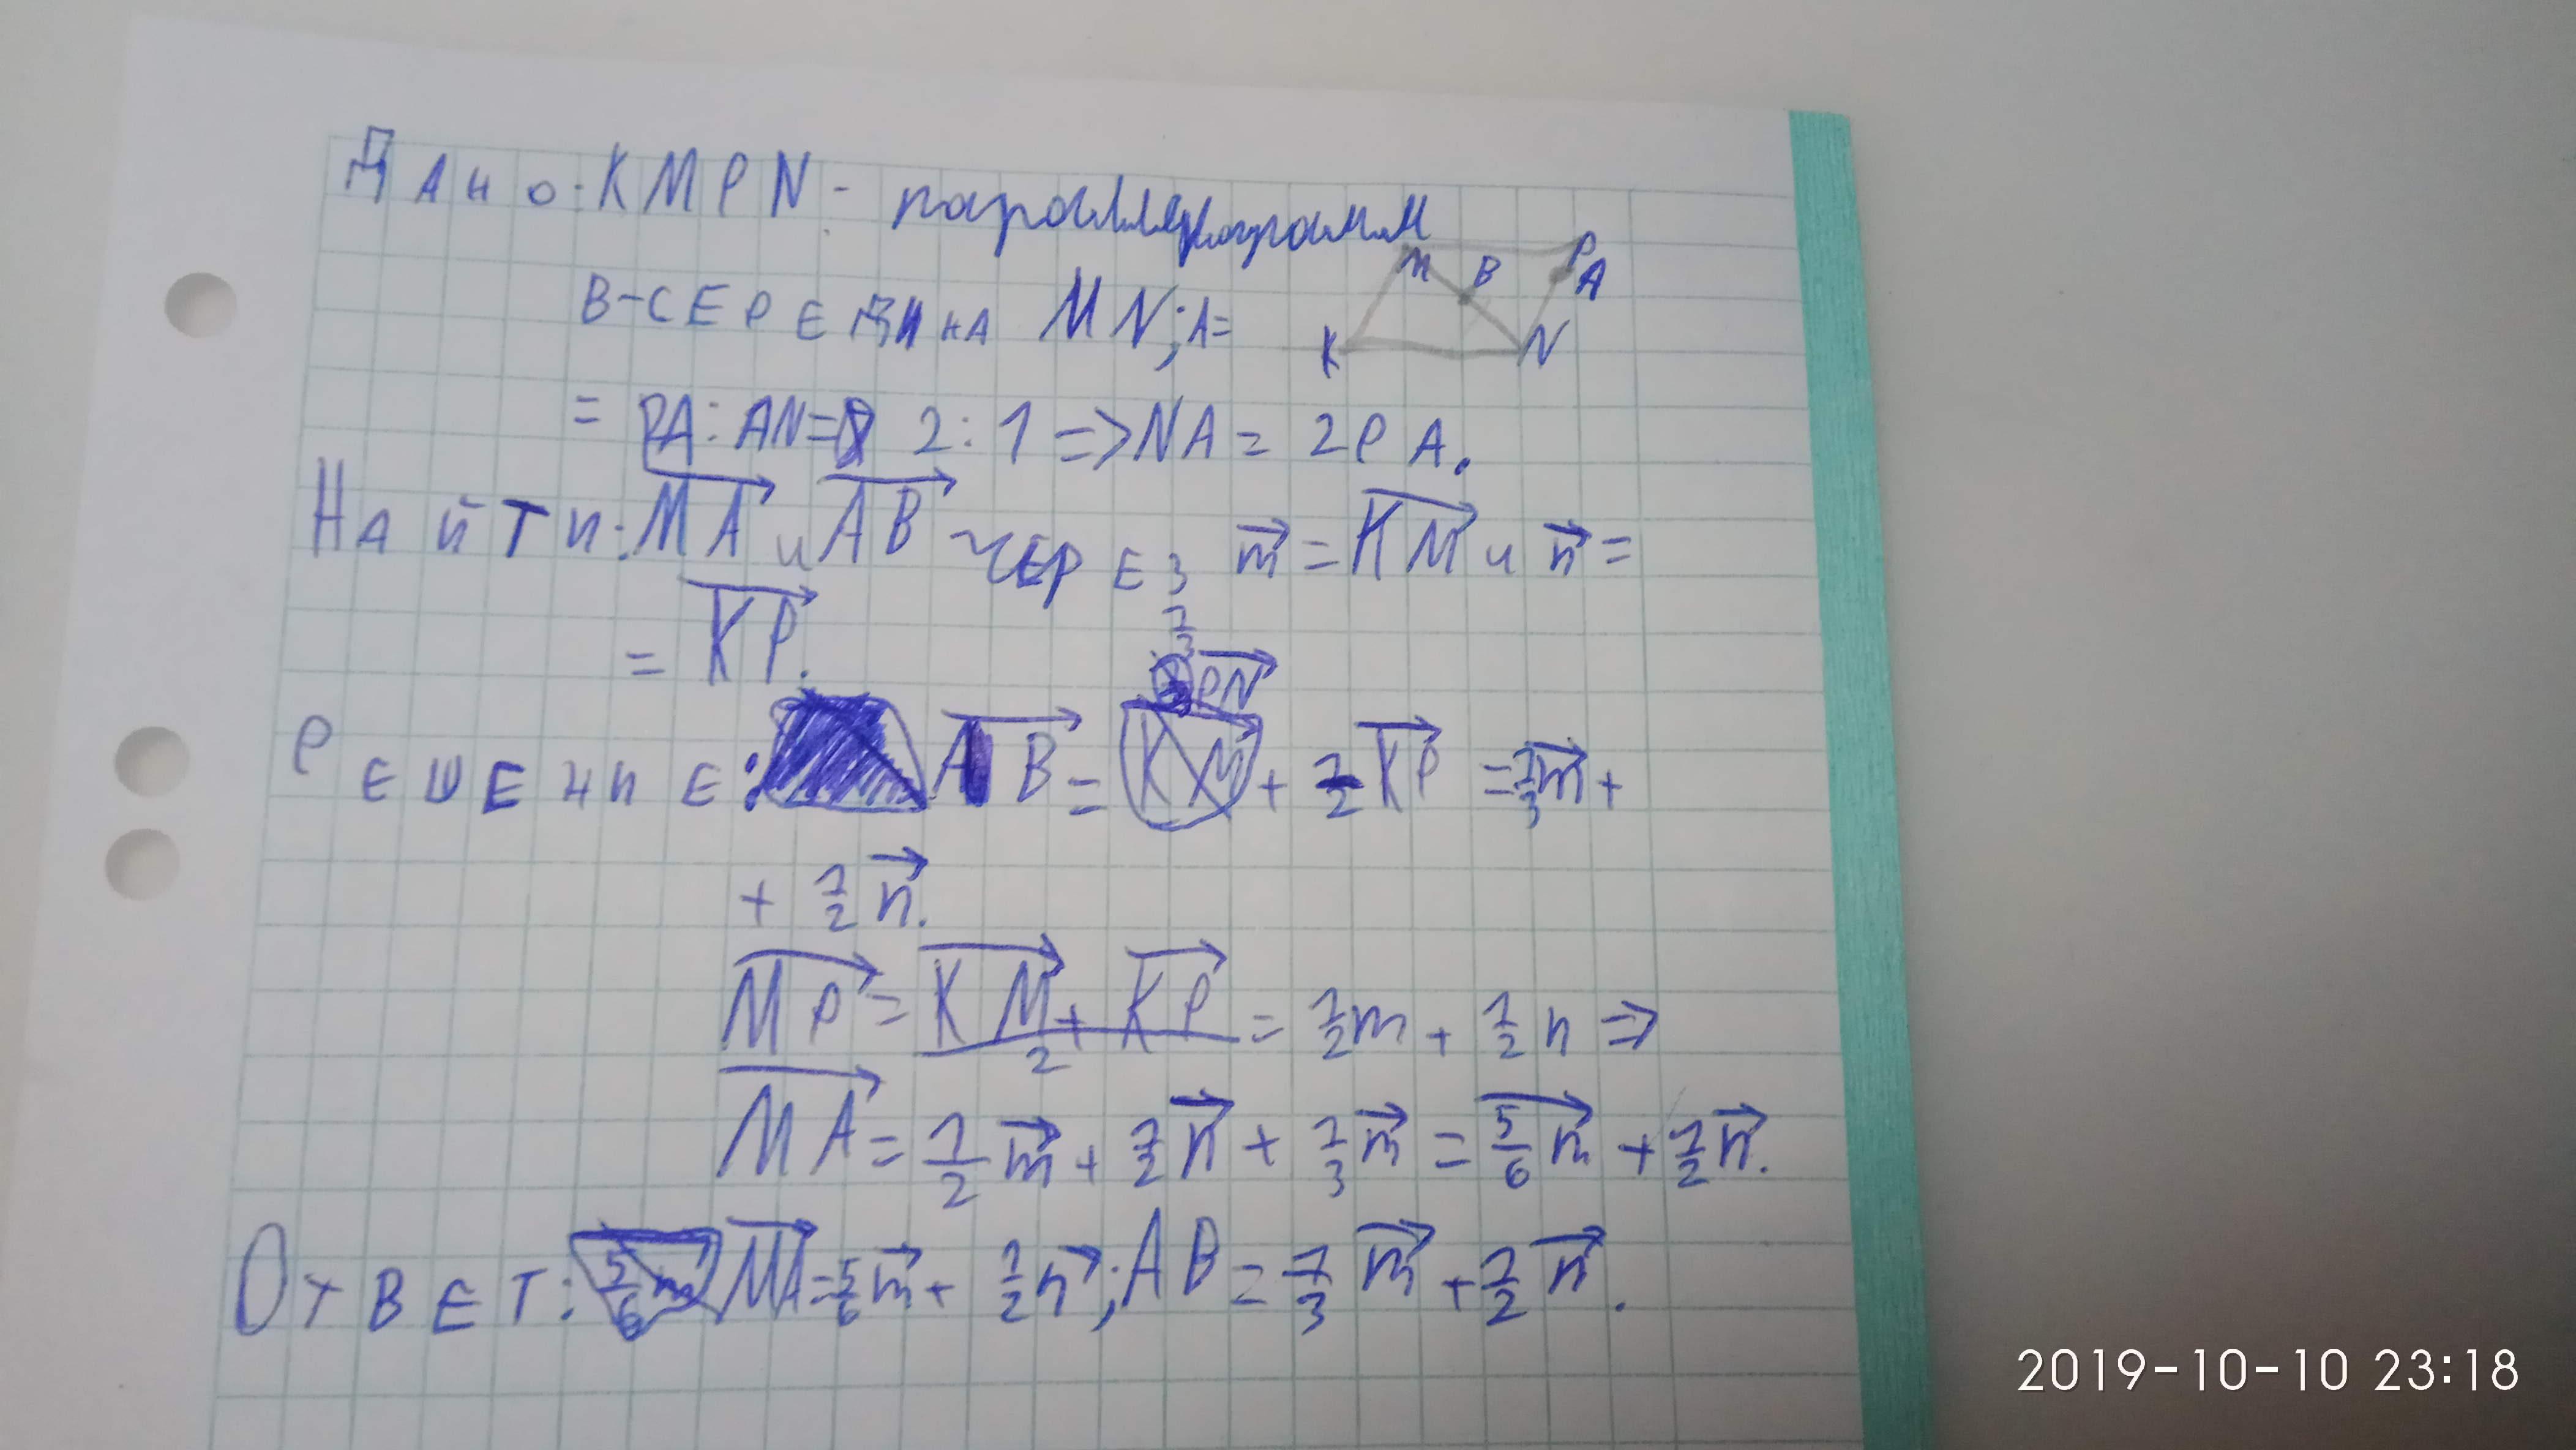 Дано: KMPN - параллелограмм
M P
M B A
K N
B-середина MN; A=
= PA:AN= 2:1 => NA = 2PA.
Найти: MA и AB через m = KM и n =
= KP.
1/3 PN
Решение: AB = KM + 1/2 KP = 1/3 m +
+ 1/2 n.
MP = KM + KP / 2 = 1/2 m + 1/2 n =>
MA = 1/2 m + 1/2 n + 1/3 m = 5/6 m + 1/2 n.
Ответ: MA = 5/6 m + 1/2 n; AB = 1/3 m + 1/2 n.
2019-10-10 23:18